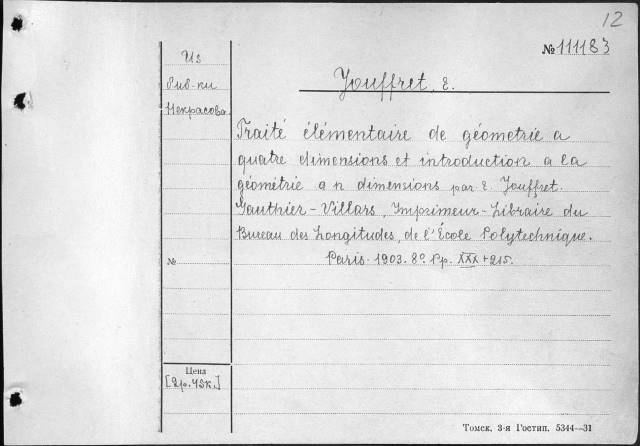 12
№ 111183
Из
биб-ки
Некрасова.
Jouffret, E.
Traité élémentaire de géometrie a
quatre dimensions et introduction a la
géométrie a n dimensions par E. Jouffret.
Gauthier-Villars, Imprimeur-Libraire du
Bureau des Longitudes, de l'École Polytechnique.
Paris. 1903. 8º. Pp. XXX + 215.
№
Цена
[2р.42к.]
Томск, 3-я Гостип. 5344—31